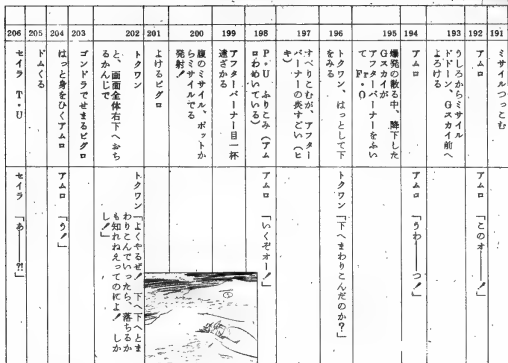 191
ミサイルつっこむ
192
アムロ
アムロ「このォ――!」
193
うしろからミサイル
ドドーン、Gスカイ前へ
よろける
194
アムロ
アムロ「うわ――っ!」
195
爆発の散る中、降下した
Gスカイが
アフターバーナーをふい
て Fr・O
196
トクワン、はっとして下
をみる
トクワン「下へまわりこんだのか?」
197
すべりこむが、アフター
バーナーの炎すごい(ヒ
キ)
198
P・U ふりこみ(アム
ロわめいている)
アムロ「いくぞォー!」
199
アフターバーナー目一杯
遠ざかる
200
腹のミサイル、ポットか
らミサイルでる
発射!
201
よけるビグロ
202
トクワン
と、画面全体右下へおち
るかんじで
トクワン「よくやるぜ! 下へ下へとま
わりこんでいったら、落ちるか
も知れねえってのによ! しか
し!」
203
ゴンドラでせまるビグロ
204
はっと身をひくアムロ
アムロ「う!」
205
ドムくる
206
セイラ T・U
セイラ「あ――?!」